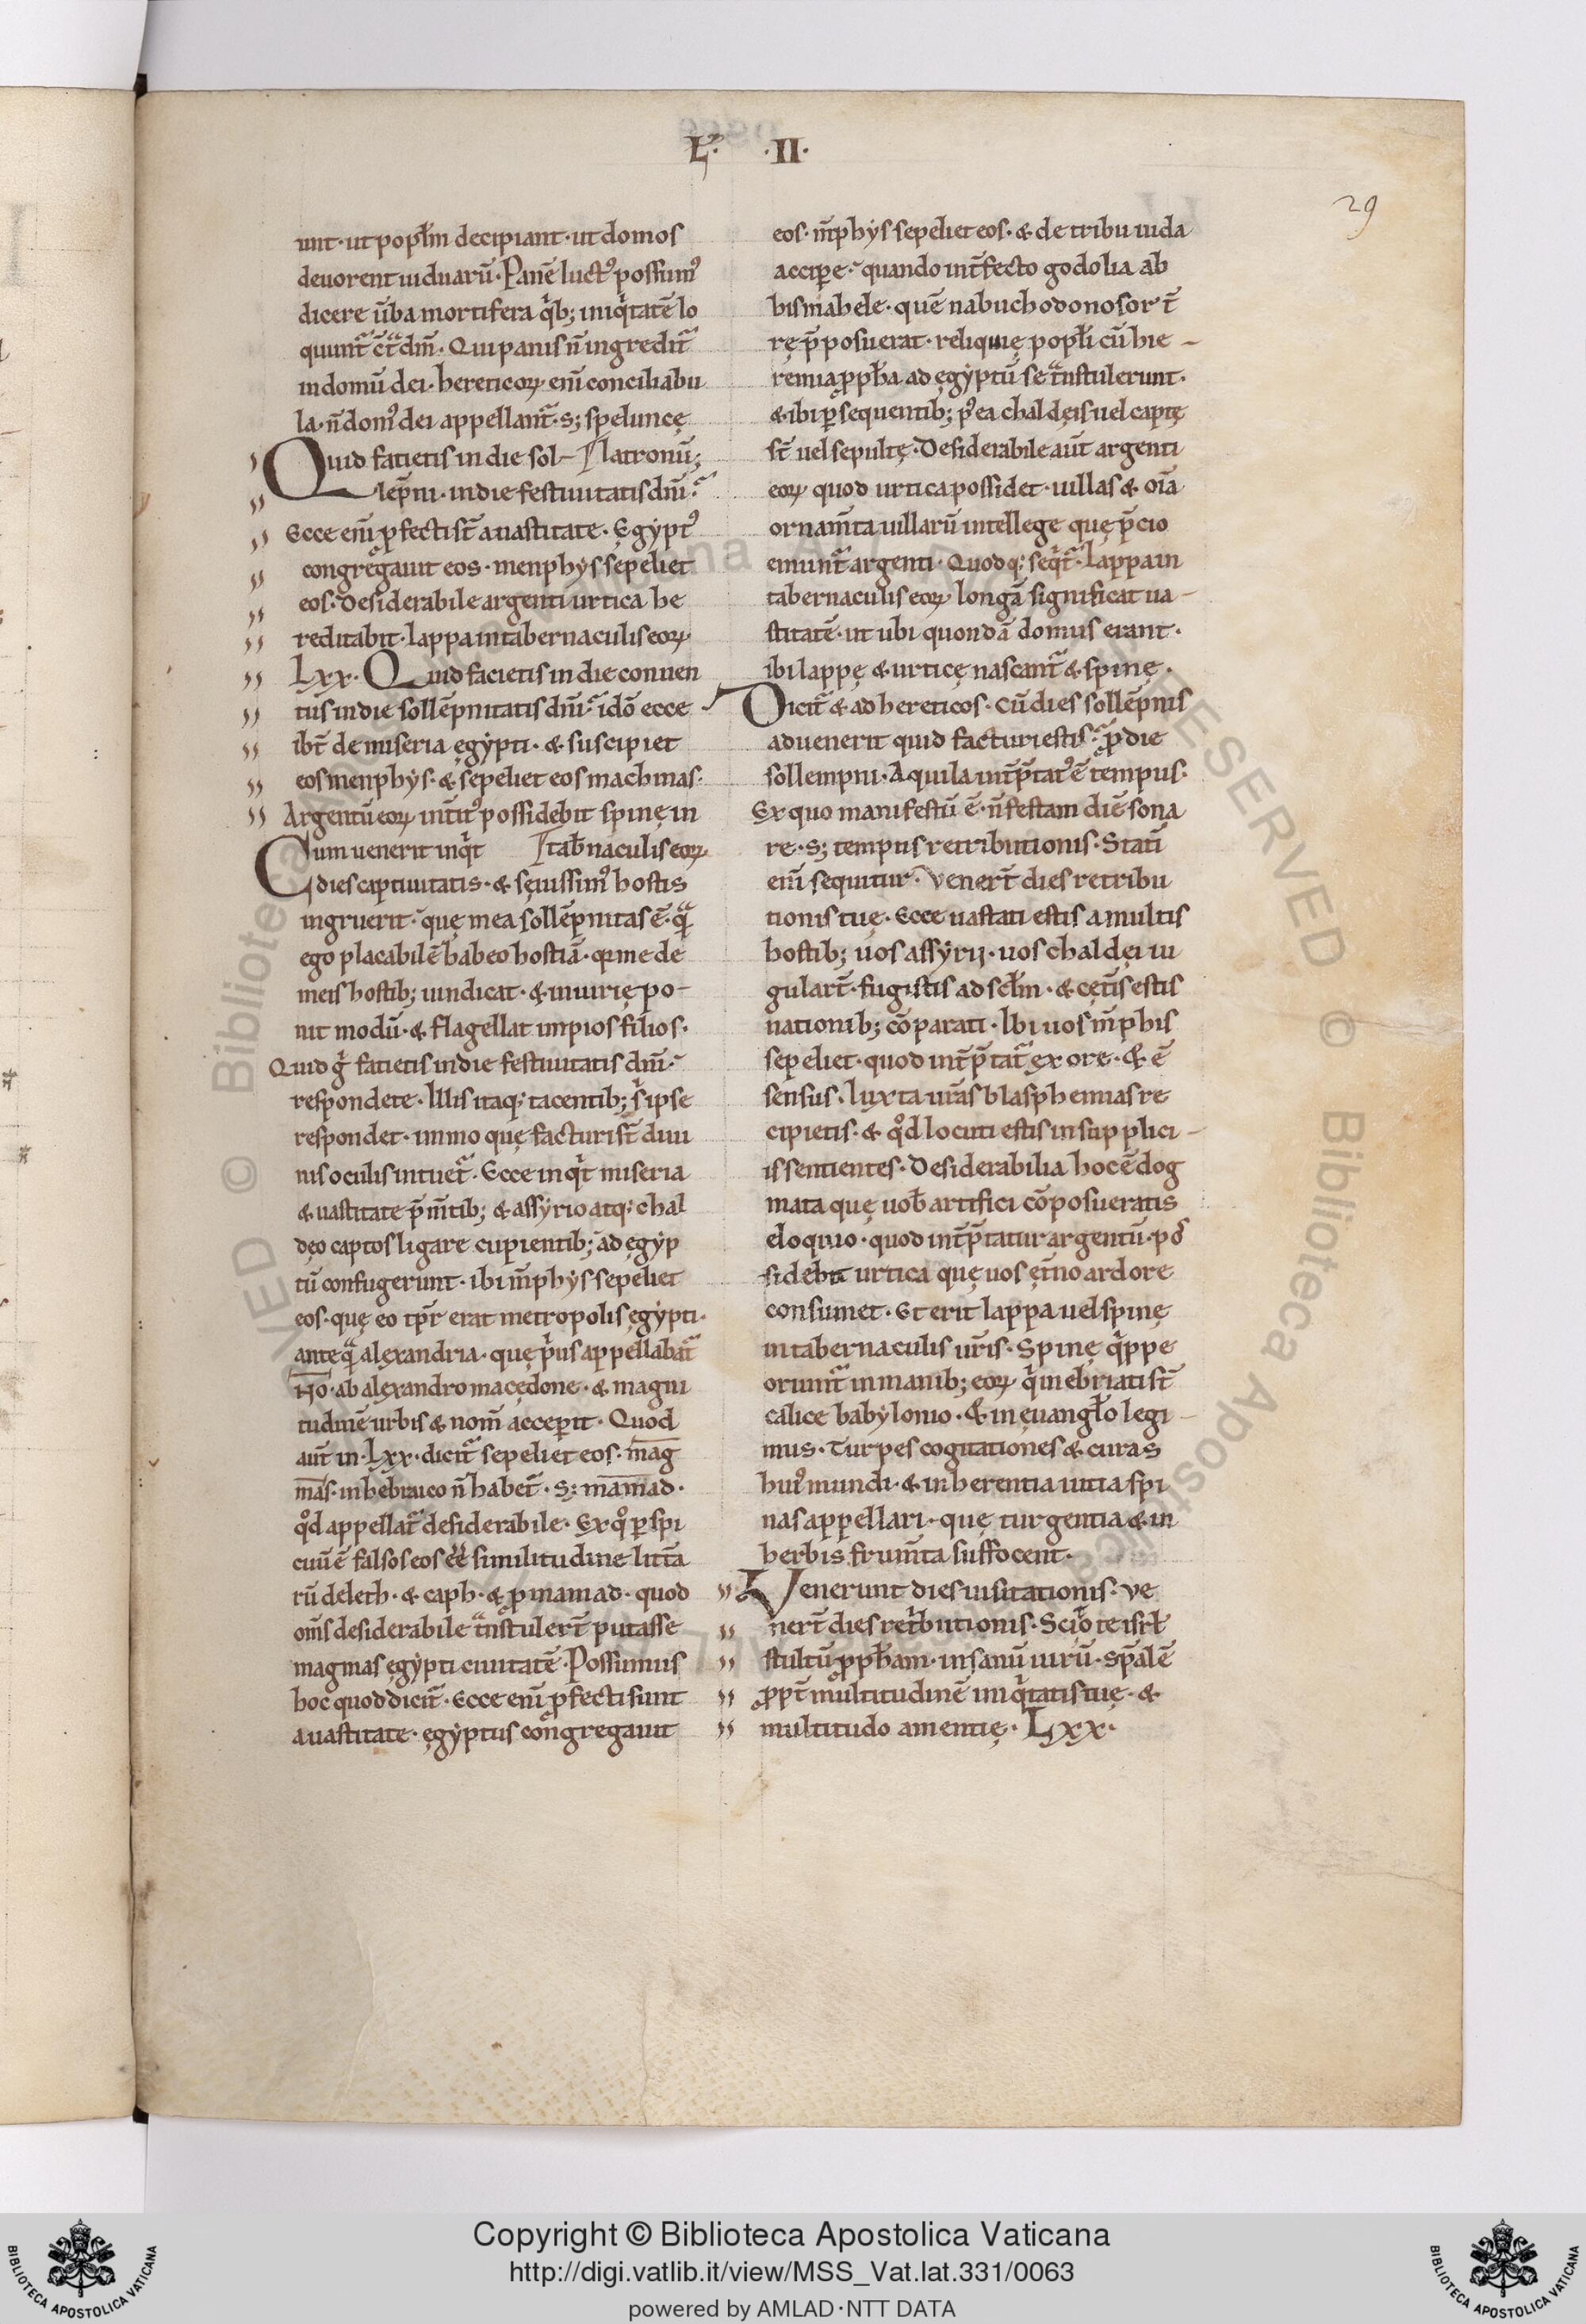 L̄. ·II·
29
unt· ut pop̄lm decipiant· ut domos
deuorent uiduarū· Panē luctꝰ possumꝰ
dicere ūba mortifera qͥb; iniqͥtatē lo
quunt̄ c̄tͣ dm̄· Qui panis n̄ ingredit̄
in domū dei· hereticoꝝ eni̅ conciliabu
la· n̄ domꝰ dei appellant̄· s; speluncę
Quid facietis in die sol– latronū;
lēpni· in die festiuitatis dn̄i
Ecce eni̅ ꝓfecti st̄ a uastitate· Egẏptꝰ
congregauit eos· menphẏs sepeliet
eos· Desiderabile argenti urtica he
reditabit· lappa in tabernaculis eoꝝ
Lxx· Quid facietis in die conuen
tus in die sollēpnitatis dn̄i· idō ecce
ibt̄ de miseria egẏpti· & suscipiet
eos menphẏs· & sepeliet eos machmas·
Argentū eoꝝ int̄itꝰ possidebit spinę in
Cum uenerit inqͥt tab̄naculis eoꝝ
dies captiuitatis· & sęuissimꝰ hostis
ingruerit· quę mea sollēpnitas ē· qͣ
ego placabilē habeo hostiā· qr me de
meis hostib; uindicat· & iniurię po–
nit modū· & flagellat impios filios·
Quid gͥ facietis in die festiuitatis dn̄i·
respondete· Illis itaq; tacentib; s̄ ipse
respondet· immo quę facturi st̄ diui
nis oculis intuet̄· Ecce inqͥt miseria
& uastitate p̄m̄tib; & assẏrio atq; chal
dęo captos ligare cupientib; ad egẏp
tū confugerunt· ibi m̄phẏs sepeliet
eos· quę eo tp̄r erat metropolis egẏpti·
anteqͣ alexandria· quę pͥus appellabat̄
No· ab alexandro macędone· & magni
tudinē urbis & nom̄ acceperit· Quod
aut̄ in· Lxx· dicit̄ sepeliet eos· mag
mas· in hebraico n̄ habet̄· s; mamad·
qͦd appellat̄ desiderabile· Ex qͦ ꝑspi
cuū ē falsos eos ēē similitudine litt̄a
rū deleth· & caph· & ꝓ mamad· quod
om̄s desiderabile tͣnstulert̄ putasse
magmas egẏpti ciuitatē· Possumus
hoc quod dicit̄· Ecce eni̅ ꝓfecti sunt
a uastitate· egẏptus congregauit
eos· m̄phẏs sepeliet eos· & de tribu iuda
accipe· quando int̄fecto godolia ab
hismahele· quē nabuchodonosor t̄
rę p̄posuerat· reliquię pop̄li cū hie–
remia ꝓph̄a ad egẏptū se tͣnstulerunt·
& ibi ꝑsequentib; p̄ea chaldęis uel captę
st̄ uel sepultę· Desiderabile aut̄ argenti
eoꝝ quod urtica possidet· uillas & oīa
ornam̄ta uillarū intellege quę p̄cio
emunt̄ argenti· Quodq; seqͥt̄· lappa in
tabernaculis eoꝝ longā significat ua–
stitatē· ut ubi quondā domus erant·
ibi lappę & urticę nascant̄ & spinę·
Dicit̄ & ad hereticos· Cū dies sollēpnis
aduenerit quid facturi estis· ꝓ die
sollempni· Aquila int̄p̄tatꝰ ē tempus·
Ex quo manifestū ē· n̄ festam diē sona
re· s; tempus retributionis· Stati̅
eni̅ sequitur· Venert̄ dies retribu
tionis tuę· Ecce uastati estis a multis
hostib; uos assẏrij· uos chaldęi iu
gulart̄· fugistis ad scl̄m· & cęt̄is estis
nationib; cōparati· Ibi uos m̄phis
sepeliet· quod int̄p̄tat̄ ex ore· & ē
sensus· Iuxta ur̄as blasphemias re
cipietis· & qͦd locuti estis in supplici–
is sentientes· Desiderabilia hoc ē dog
mata quę uob̄ artifici cōposueratis
eloquio· quod int̄p̄tatur argentū· pos
sidebit urtica quę uos ęt̄no ardore
consumet· Et erit lappa uel spinę
in tabernaculis ur̄is· Spinę qͥppe
oriunt̄ in manib; eoꝝ qͥ inebriati st̄
calice babẏlonio· & in euangl̄o legi–
mus· Turpes cogitationes & curas
huiꝰ mundi· & inherentia uitia spi
nas appellari· quę turgentia & in
herbis frum̄ta suffocent·
Venerunt dies uisitationis· Ve
nert̄ dies ret̄butionis· Scitote isrl̄
stultū ꝓph̄am· insanū uirū· sp̄alē
ꝓpt̄ multitudinē iniqͥtatis tuę· &
multitudo amentię· Lxx·
Copyright © Biblioteca Apostolica Vaticana
http://digi.vatlib.it/view/MSS_Vat.lat.331/0063
powered by AMLAD·NTT DATA
BIBLIOTECA APOSTOLICA VATICANA
BIBLIOTECA APOSTOLICA VATICANA